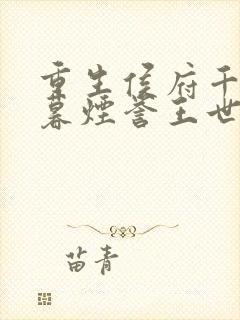 重生侯府千
暮煙誉王世
苗青